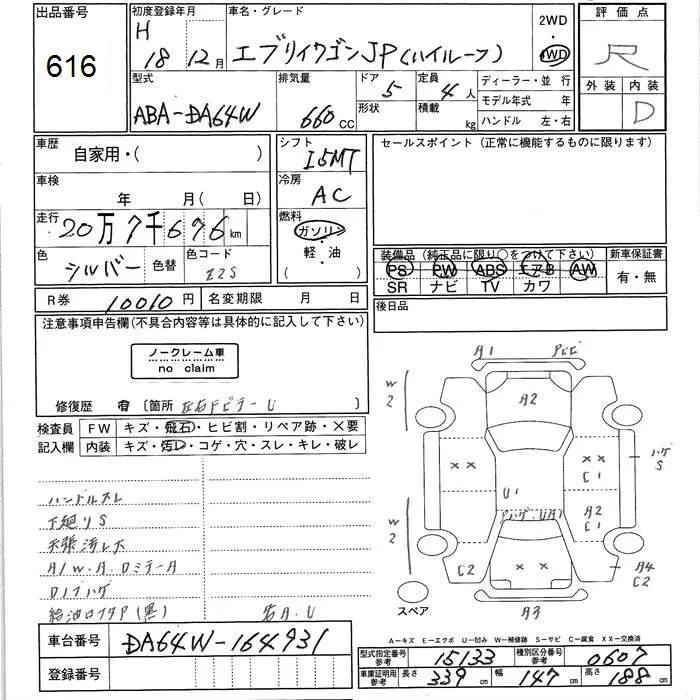 出品番号
616
初度登録年月
H
18 12月
車名・グレード
エブリイワゴンJP(ハイルーフ)
2WD
4WD
評価点
R
外装 内装
D
型式
ABA-DA64W
排気量
660 cc
ドア
5
形状
定員
4 人
積載
kg
ディーラー・並行
モデル年式 年
ハンドル 左・右
車歴
自家用・( )
シフト
I5MT
セールスポイント(正常に機能するものに限ります)
車検
年 月( 日)
冷房
AC
走行
20万7千676 km
燃料
ガソリン
軽・油
( )
色
シルバー
色替
色コード
Z2S
装備品(純正品に限り○をつけて下さい)
PS PW ABS エアB AW
SR ナビ TV カワ
新車保証書
有・無
R券 10010円
名変期限 月 日
後日品
注意事項申告欄(不具合内容等は具体的に記入して下さい)
ノークレーム車
no claim
修復歴 有 〔箇所 左右Fピラー U 〕
検査員
記入欄
FW キズ・飛石・ヒビ割・リペア跡・×要
内装 キズ・汚レ・コゲ・穴・スレ・キレ・破レ
ハンドルスレ
下廻りS
天張汚レ大
A/W・A・DミラーA
Dノブハゲ
A1
W2
A2
ハゲ
S
××
××
C1
U1
A2
C1
W2
C2
××
A4
C2
A3
スペア
A-キズ E-エクボ U-凹み W-補修跡 S-サビ C-腐食 XX-交換済
車台番号 DA64W-164931
登録番号
型式指定番号
参考
15133
種別区分番号
参考
0607
車庫証明用
参考
長さ 339 cm
幅 147 cm
高さ 188 cm